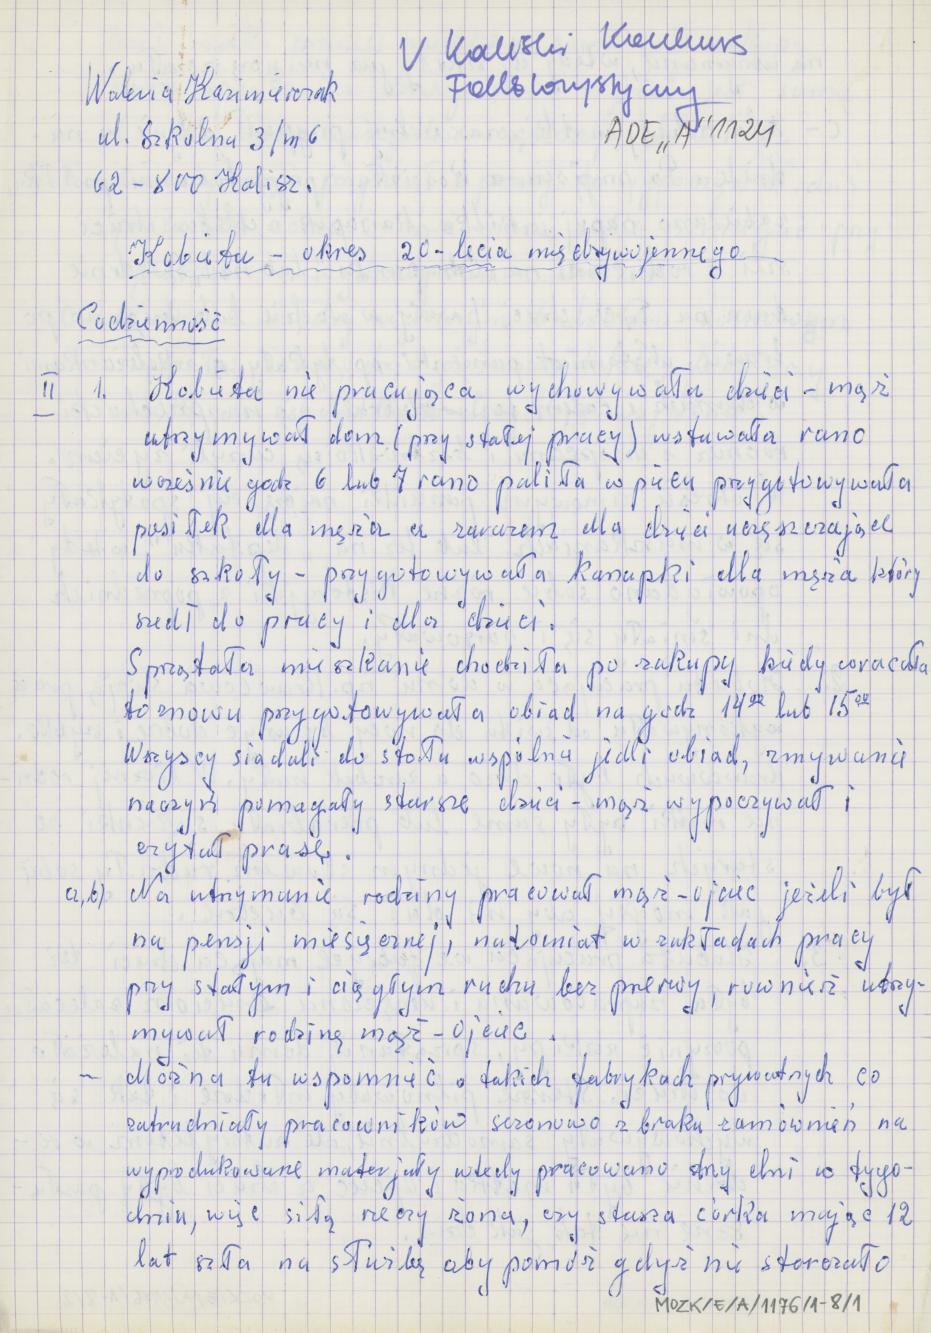 V Kaliski Konkurs
Folklorystyczny
ADE „A" 1124
Waleria Kazimierczak
ul. Szkolna 3/m 6
62-800 Kalisz.
Kobieta - okres 20-lecia międzywojennego
Codzienność
II 1. Kobieta nie pracująca wychowywała dzieci - mąż
utrzymywał dom (przy stałej pracy) wstawała rano
wcześnie godz 6 lub 7 rano paliła w piecu przygotowywała
posiłek dla męża a zarazem dla dzieci uczęszczając
do szkoły - przygotowywała kanapki dla męża który
szedł do pracy i dla dzieci.
Sprzątała mieszkanie chodziła po zakupy kiedy wracała
to znowu przygotowywała obiad na godz 14⁰⁰ lub 15⁰⁰
Wszyscy siadali do stołu wspólnie jedli obiad, zmywanie
naczyń pomagały starsze dzieci - mąż wypoczywał i
czytał prasę.
a,b) Na utrzymanie rodziny pracował mąż-ojciec jeżeli był
na pensji miesięcznej, natomiat w zakładach pracy
przy stałym i ciągłym ruchu bez przerwy, rownież utrzy-
mywał rodzinę mąż-ojciec.
- Można tu wspomnieć o takich fabrykach prywatnych co
zatrudniały pracowników sezonowo z braku zamówień na
wyprodukowane materjały wtedy pracowano trzy dni w tygo-
dniu, więc siłą rzeczy żona, czy starsza córka mając 12
lat szła na służbę aby pomóż gdyż nie starczało
MOZK/E/A/1176/1-8/1